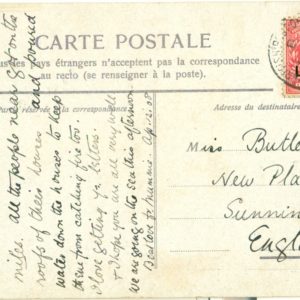 CARTE POSTALE
us les pays étrangers n'acceptent pas la correspondance
au recto (se renseigner à la poste).
réservée à la correspondance
Adresse du destinataire
miles. All the people near got onto the
roofs of their houses and poured
water down the houses to keep
them from catching fire too.
I love getting yr. letters.
& hope you are all very well.
We are going on the sea this afternoon
Best love to Mummie. Ap. 12. 08
Miss Butle
New Pla
Sunnin
Engl